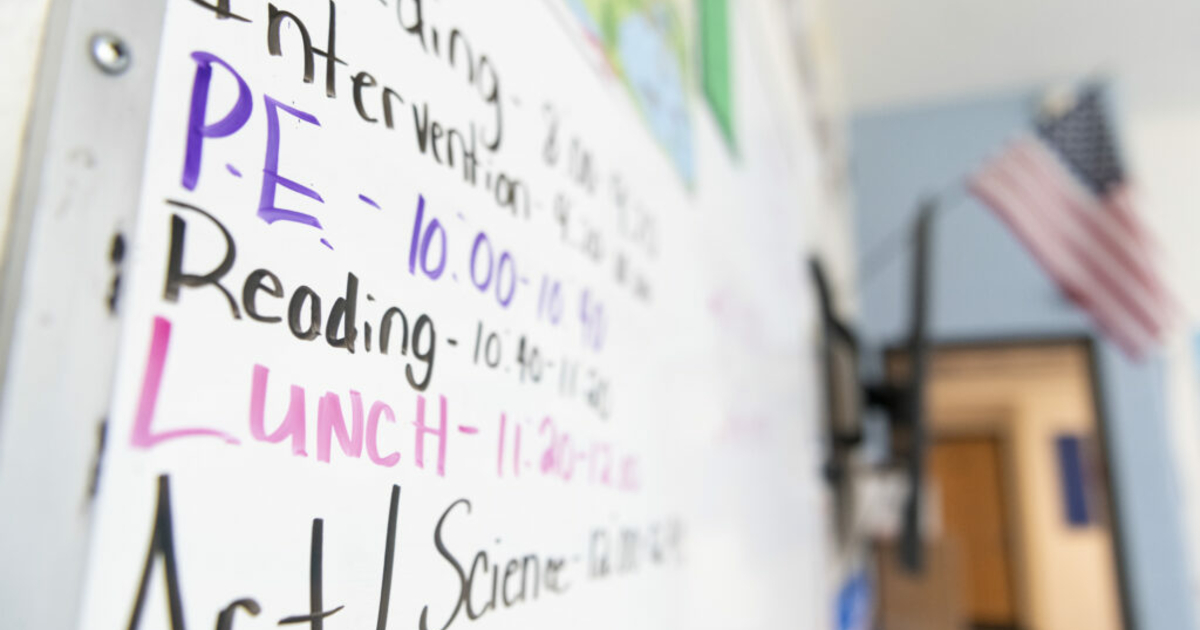 ding - 8:00
Intervention - 9:20
P.E. - 10:00-10:40
Reading - 10:40-11:20
LUNCH - 11:20-12:00
Art/Science - 12:00